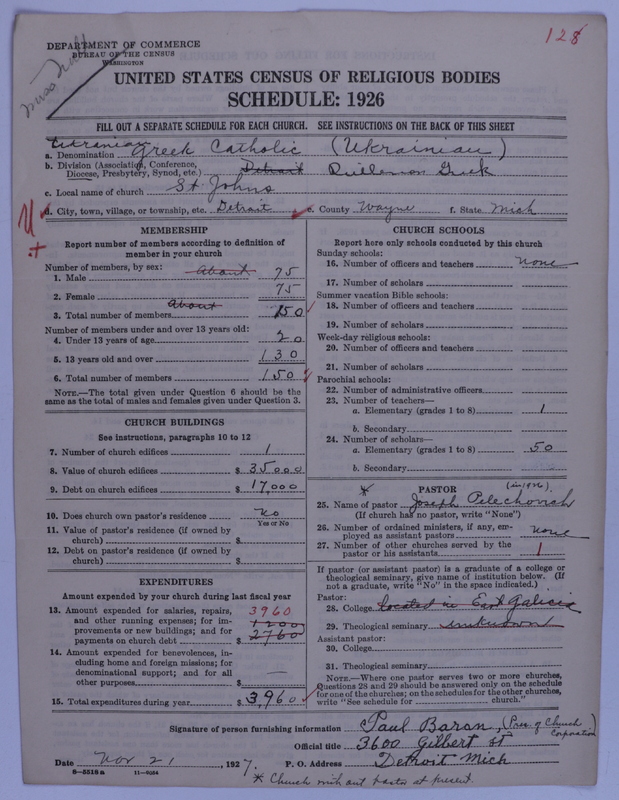 128
DEPARTMENT OF COMMERCE
BUREAU OF THE CENSUS
WASHINGTON
UNITED STATES CENSUS OF RELIGIOUS BODIES
SCHEDULE: 1926
FILL OUT A SEPARATE SCHEDULE FOR EACH CHURCH. SEE INSTRUCTIONS ON THE BACK OF THIS SHEET
a. Denomination Greek Catholic (Ukrainian)
b. Division (Association, Conference, Diocese, Presbytery, Synod, etc.) Detroit Greek
c. Local name of church St. Johns
d. City, town, village, or township, etc. Detroit e. County Wayne f. State Mich
MEMBERSHIP
Report number of members according to definition of
member in your church
Number of members, by sex:
1. Male About 75
2. Female 75
3. Total number of members About 150
Number of members under and over 13 years old:
4. Under 13 years of age 20
5. 13 years old and over 130
6. Total number of members 150
NOTE.—The total given under Question 6 should be
same as the total of males and females given under Question 3.
CHURCH BUILDINGS
See instructions, paragraphs 10 to 12
7. Number of church edifices 1
8. Value of church edifices $ 35000
9. Debt on church edifices $ 17,000
10. Does church own pastor's residence No
Yes or No
11. Value of pastor's residence (if owned by
church) $
12. Debt on pastor's residence (if owned by
church) $
EXPENDITURES
Amount expended by your church during last fiscal year
13. Amount expended for salaries, repairs, 3960
and other running expenses; for im- 1200
provements or new buildings; and for 2760
payments on church debt $
14. Amount expended for benevolences, in-
cluding home and foreign missions; for
denominational support; and for all
other purposes $ —
15. Total expenditures during year $ 3,960
CHURCH SCHOOLS
Report here only schools conducted by this church
Sunday schools:
16. Number of officers and teachers none
17. Number of scholars
Summer vacation Bible schools:
18. Number of officers and teachers
19. Number of scholars
Week-day religious schools:
20. Number of officers and teachers
21. Number of scholars
Parochial schools:
22. Number of administrative officers
23. Number of teachers—
a. Elementary (grades 1 to 8) 1
b. Secondary
24. Number of scholars—
a. Elementary (grades 1 to 8) 50
b. Secondary
* PASTOR (in 1926)
25. Name of pastor Joseph
(If church has no pastor, write "None")
26. Number of ordained ministers, if any, em-
ployed as assistant pastors none
27. Number of other churches served by the
pastor or his assistants 1
If pastor (or assistant pastor) is a graduate of a college or
theological seminary, give name of institution below. (If
not a graduate, write "No" in the space indicated.)
Pastor:
28. College located in East Galicia
29. Theological seminary unknown
Assistant pastor:
30. College
31. Theological seminary
NOTE.—Where one pastor serves two or more churches,
Questions 28 and 29 should be answered only on the schedule
for one of the churches; on the schedules for the other churches,
write "See schedule for church."
Signature of person furnishing information Paul Baran, (Pres. of Church Corporation)
Official title 3600 Gilbert St
Date Nov 21, 1927. P. O. Address Detroit Mich
8—5518 a 11—9024
* Church without pastor at present.